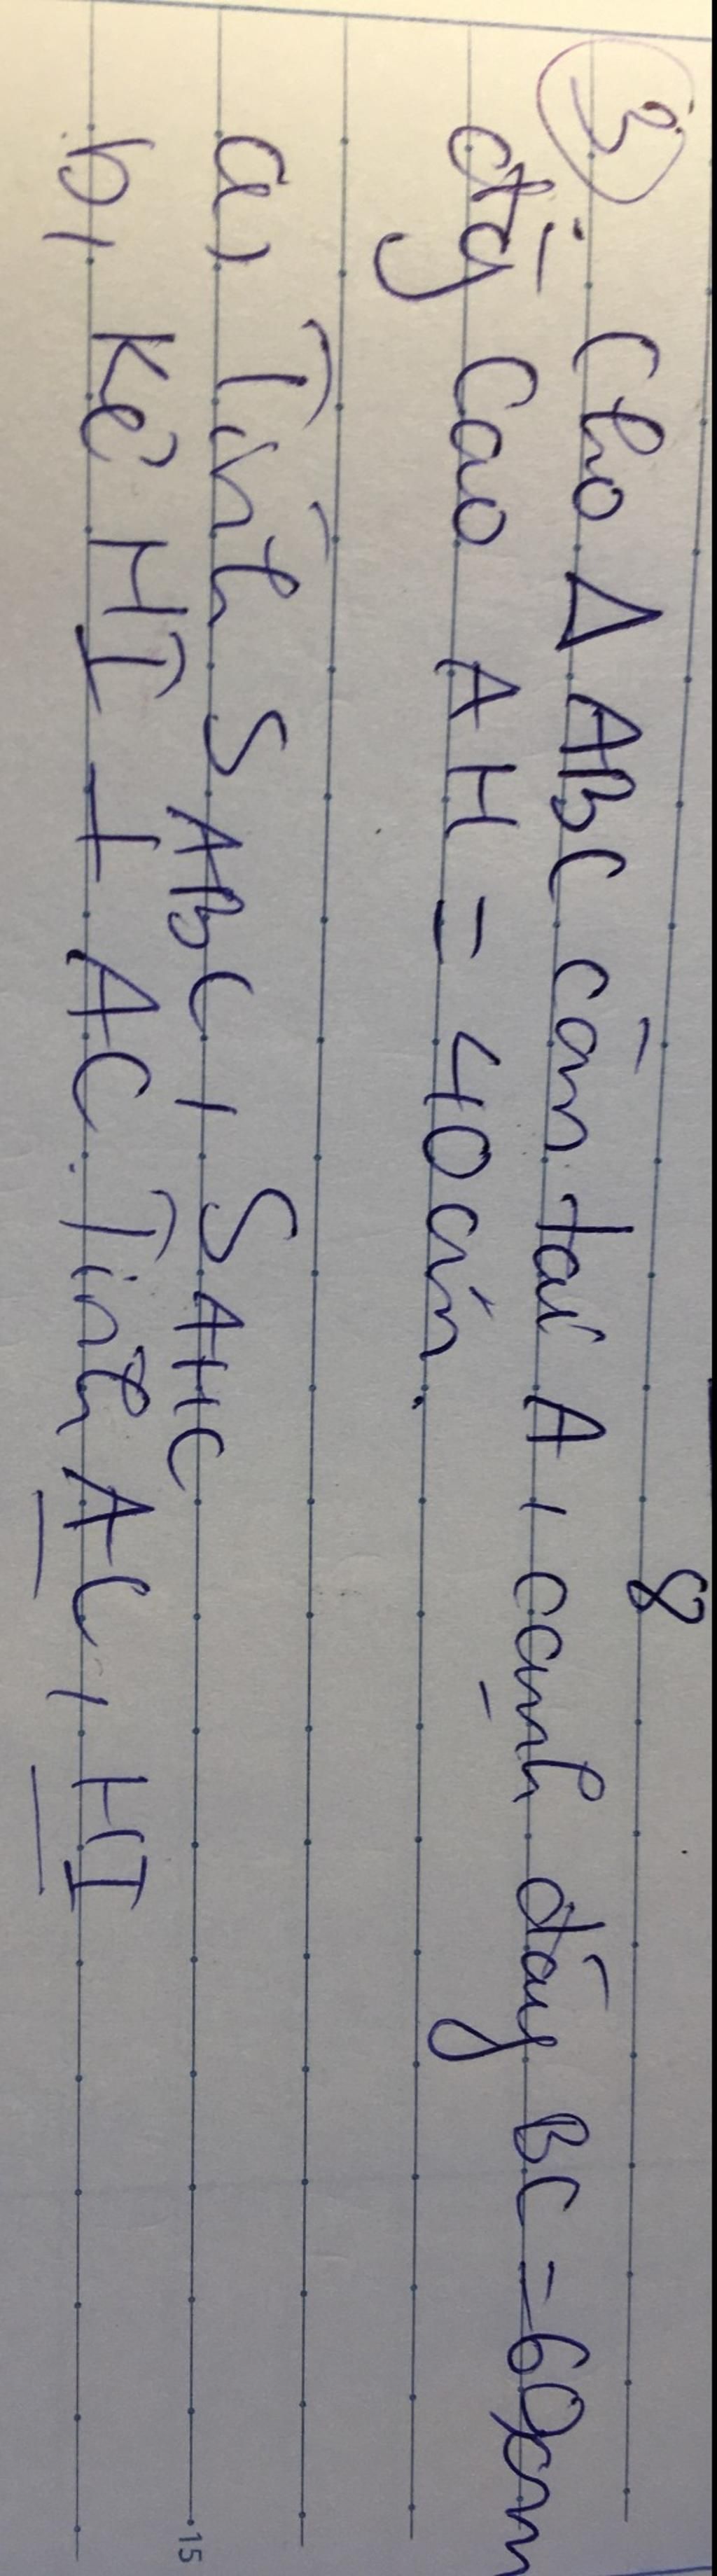 8
③. Cho Δ ABC cân tại A, cạnh đáy BC = 60cm
đg cao AH = 40cm.
a, Tính S ABC, S AHC
b, Kẻ HI ⊥ AC. Tính AC, HI
15